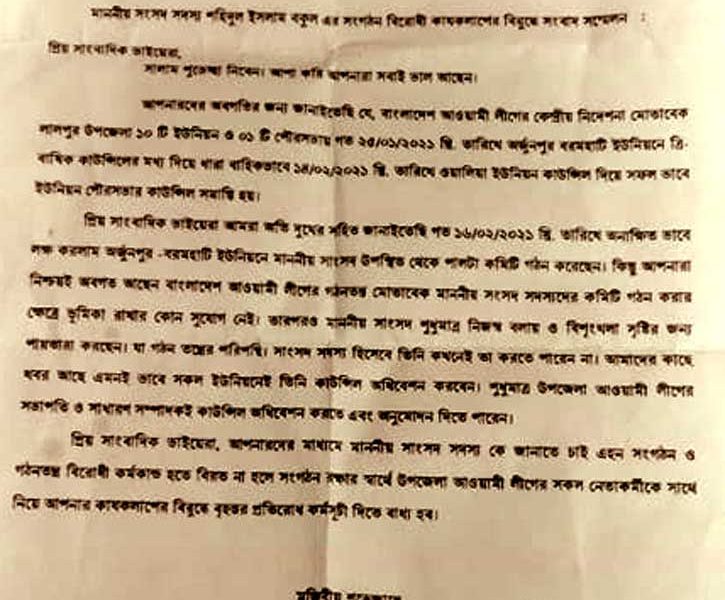 মাননীয় সংসদ সদস্য শহিদুল ইসলাম বকুল এর সংগঠন বিরোধী কাযকলাপের বিরুদ্ধে সংবাদ সম্মেলন :
প্রিয় সাংবাদিক ভাইয়েরা,
সালাম শুভেচ্ছা নিবেন। আশা করি আপনারা সবাই ভাল আছেন।
আপনারদের অবগতির জন্য জানাইতেছি যে, বাংলাদেশ আওয়ামী লীগের কেন্দ্রীয় নিদেশনা মোতাবেক
লালপুর উপজেলা ১০ টি ইউনিয়ন ও ০১ টি পৌরসভায় গত ২৫/০১/২০২১ খ্রি. তারিখে অর্জুনপুর বরমহাটি ইউনিয়নে ত্রি-
বার্ষিক কাউন্সিলের মধ্য দিয়ে ধারা বাহিকভাবে ১৪/০২/২০২১ খ্রি. তারিখে ওয়ালিয়া ইউনিয়ন কাউন্সিল দিয়ে সফল ভাবে
ইউনিয়ন পৌরসভার কাউন্সিল সমাপ্তি হয়।
প্রিয় সাংবাদিক ভাইয়েরা আমরা অতি দুখের সহিত জানাইতেছি গত ১৬/০২/২০২১ খ্রি. তারিখে অনাঙ্খিত ভাবে
লক্ষ করলাম অর্জুনপুর -বরমহাটি ইউনিয়নে মাননীয় সাংসদ উপস্থিত থেকে পালটা কমিটি গঠন করেছেন। কিন্তু আপনারা
নিশ্চয়ই অবগত আছেন বাংলাদেশ আওয়ামী লীগের গঠনতন্ত্র মোতাবেক মাননীয় সংসদ সদস্যদের কমিটি গঠন করার
ক্ষেত্রে ভূমিকা রাখার কোন সুযোগ নেই। তারপরও মাননীয় সাংসদ শুধুমাত্র নিজস্ব বলায় ও বিশৃংখলা সৃষ্টির জন্য
পায়তারা করছেন। যা গঠন তন্ত্রের পরিপন্থি। সাংসদ সদস্য হিসেবে তিনি কখনেই তা করতে পারেন না। আমাদের কাছে
খবর আছে এমনই ভাবে সকল ইউনিয়নেই তিনি কাউন্সিল অধিবেশন করবেন। শুধুমাত্র উপজেলা আওয়ামী লীগের
সভাপতি ও সাধারণ সম্পাদকই কাউন্সিল অধিবেশন করতে এবং অনুমোদন দিতে পারেন।
প্রিয় সাংবাদিক ভাইয়েরা, আপনারদের মাধ্যমে মাননীয় সাংসদ সদস্য কে জানাতে চাই এহন সংগঠন ও
গঠনতন্ত্র বিরোধী কর্মকান্ড হতে বিরত না হলে সংগঠন রক্ষার স্বার্থে উপজেলা আওয়ামী লীগের সকল নেতাকর্মীকে সাথে
নিয়ে আপনার কাযকলাপের বিরুদ্ধে বৃহত্তর প্রতিরোধ কর্মসূচী দিতে বাধ্য হব।